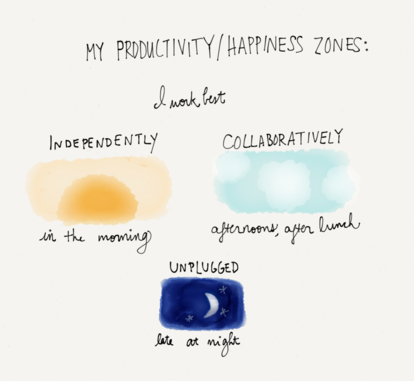 MY PRODUCTIVITY/HAPPINESS ZONES:
I work best
INDEPENDENTLY
in the morning
COLLABORATIVELY
afternoons, after lunch
UNPLUGGED
late at night